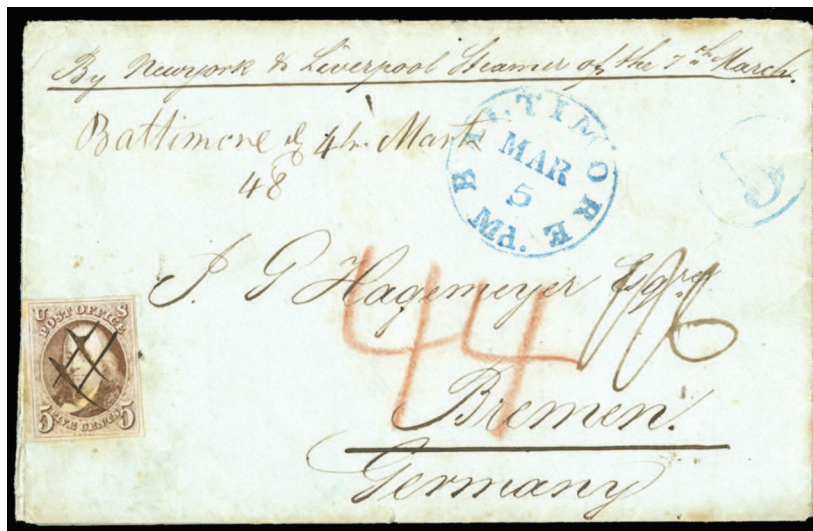 By Newyork & Liverpool Steamer of the 7th March.
Baltimore d 4th. March
48
BALTIMORE Md.
MAR
5
5
J. G Hagemeyer Esqre
44
Bremen.
Germany
U S
POST OFFICE
5 FIVE CENTS 5